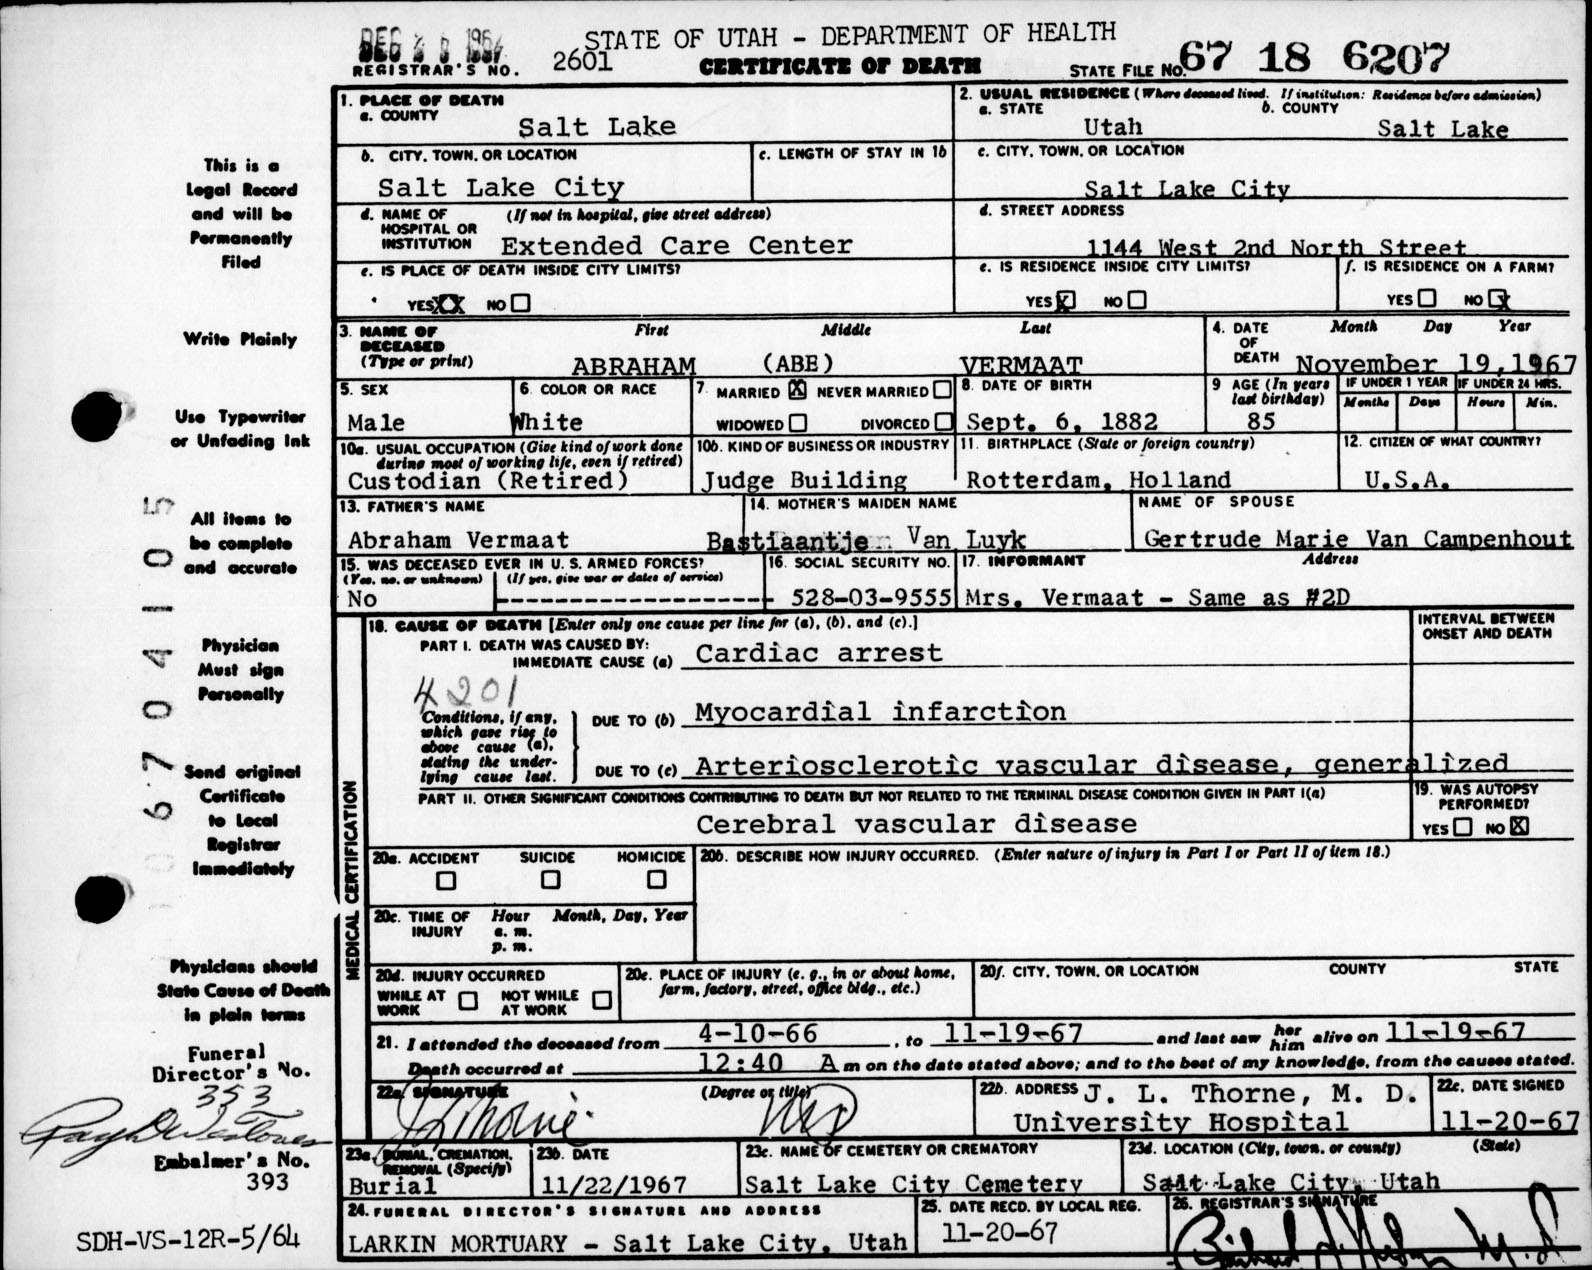 STATE OF UTAH - DEPARTMENT OF HEALTH
REGISTRAR'S NO. 2601
CERTIFICATE OF DEATH
STATE FILE NO. 67 18 6207
This is a
Legal Record
and will be
Permanently
Filed
Write Plainly
Use Typewriter
or Unfading Ink
All items to
be complete
and accurate
Physician
Must sign
Personally
Send original
Certificate
to Local
Registrar
Immediately
Physicians should
State Cause of Death
in plain terms
Funeral
Director's No.
353
Embalmer's No.
393
SDH-VS-12R-5/64
67 04105
1. PLACE OF DEATH
a. COUNTY
Salt Lake
2. USUAL RESIDENCE (Where deceased lived. If institution: Residence before admission)
a. STATE b. COUNTY
Utah Salt Lake
b. CITY, TOWN, OR LOCATION
Salt Lake City
c. LENGTH OF STAY IN 1b
c. CITY, TOWN, OR LOCATION
Salt Lake City
d. NAME OF (If not in hospital, give street address)
HOSPITAL OR
INSTITUTION Extended Care Center
d. STREET ADDRESS
1144 West 2nd North Street
e. IS PLACE OF DEATH INSIDE CITY LIMITS?
YES XX NO
e. IS RESIDENCE INSIDE CITY LIMITS?
YES X NO
f. IS RESIDENCE ON A FARM?
YES NO X
3. NAME OF First Middle Last
DECEASED
(Type or print) ABRAHAM (ABE) VERMAAT
4. DATE Month Day Year
OF
DEATH November 19,1967
5. SEX
Male
6. COLOR OR RACE
White
7. MARRIED X NEVER MARRIED
WIDOWED DIVORCED
8. DATE OF BIRTH
Sept. 6, 1882
9 AGE (In years
last birthday)
85
IF UNDER 1 YEAR IF UNDER 24 HRS.
Months Days Hours Min.
10a. USUAL OCCUPATION (Give kind of work done
during most of working life, even if retired)
Custodian (Retired)
10b. KIND OF BUSINESS OR INDUSTRY
Judge Building
11. BIRTHPLACE (State or foreign country)
Rotterdam, Holland
12. CITIZEN OF WHAT COUNTRY?
U.S.A.
13. FATHER'S NAME
Abraham Vermaat
14. MOTHER'S MAIDEN NAME
Bastiaantje Van Luyk
NAME OF SPOUSE
Gertrude Marie Van Campenhout
15. WAS DECEASED EVER IN U. S. ARMED FORCES?
(Yes, no, or unknown) (If yes, give war or dates of service)
No --------------------
16. SOCIAL SECURITY NO.
528-03-9555
17. INFORMANT Address
Mrs. Vermaat - Same as #2D
MEDICAL CERTIFICATION
18. CAUSE OF DEATH [Enter only one cause per line for (a), (b), and (c).]
INTERVAL BETWEEN
ONSET AND DEATH
PART I. DEATH WAS CAUSED BY:
IMMEDIATE CAUSE (a) Cardiac arrest
4201
Conditions, if any,
which gave rise to
above cause (a),
stating the under-
lying cause last.
DUE TO (b) Myocardial infarction
DUE TO (c) Arteriosclerotic vascular disease, generalized
PART II. OTHER SIGNIFICANT CONDITIONS CONTRIBUTING TO DEATH BUT NOT RELATED TO THE TERMINAL DISEASE CONDITION GIVEN IN PART I(a)
Cerebral vascular disease
19. WAS AUTOPSY
PERFORMED?
YES NO X
20a. ACCIDENT SUICIDE HOMICIDE
20b. DESCRIBE HOW INJURY OCCURRED. (Enter nature of injury in Part I or Part II of item 18.)
20c. TIME OF Hour Month, Day, Year
INJURY a. m.
p. m.
20d. INJURY OCCURRED
WHILE AT NOT WHILE
WORK AT WORK
20e. PLACE OF INJURY (e. g., in or about home,
farm, factory, street, office bldg., etc.)
20f. CITY, TOWN, OR LOCATION COUNTY STATE
21. I attended the deceased from 4-10-66, to 11-19-67 and last saw her him alive on 11-19-67
Death occurred at 12:40 A m on the date stated above; and to the best of my knowledge, from the causes stated.
22a. SIGNATURE (Degree or title)
J L Thorne MD
22b. ADDRESS J. L. Thorne, M. D.
University Hospital
22c. DATE SIGNED
11-20-67
23a. BURIAL, CREMATION,
REMOVAL (Specify)
Burial
23b. DATE
11/22/1967
23c. NAME OF CEMETERY OR CREMATORY
Salt Lake City Cemetery
23d. LOCATION (City, town, or county) (State)
Salt Lake City Utah
24. FUNERAL DIRECTOR'S SIGNATURE AND ADDRESS
LARKIN MORTUARY - Salt Lake City, Utah
25. DATE RECD. BY LOCAL REG.
11-20-67
26. REGISTRAR'S SIGNATURE